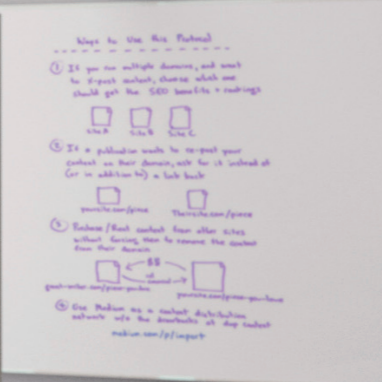 Ways to Use this Protocol
① If you run multiple domains, and want
to x-post content, choose which one
should get the SEO benefits + rankings
Site A Site B Site C
② If a publication wants to re-post your
content on their domain, ask for it instead of
(or in addition to) a link back
yoursite.com/piece Theirsite.com/piece
③ Purchase/Rent content from other sites
without forcing them to remove the content
from their domain
$$
rel
yoursite.com/piece-you-love
④ Use Medium as a content distribution
network w/o the drawbacks of dup content
medium.com/p/import